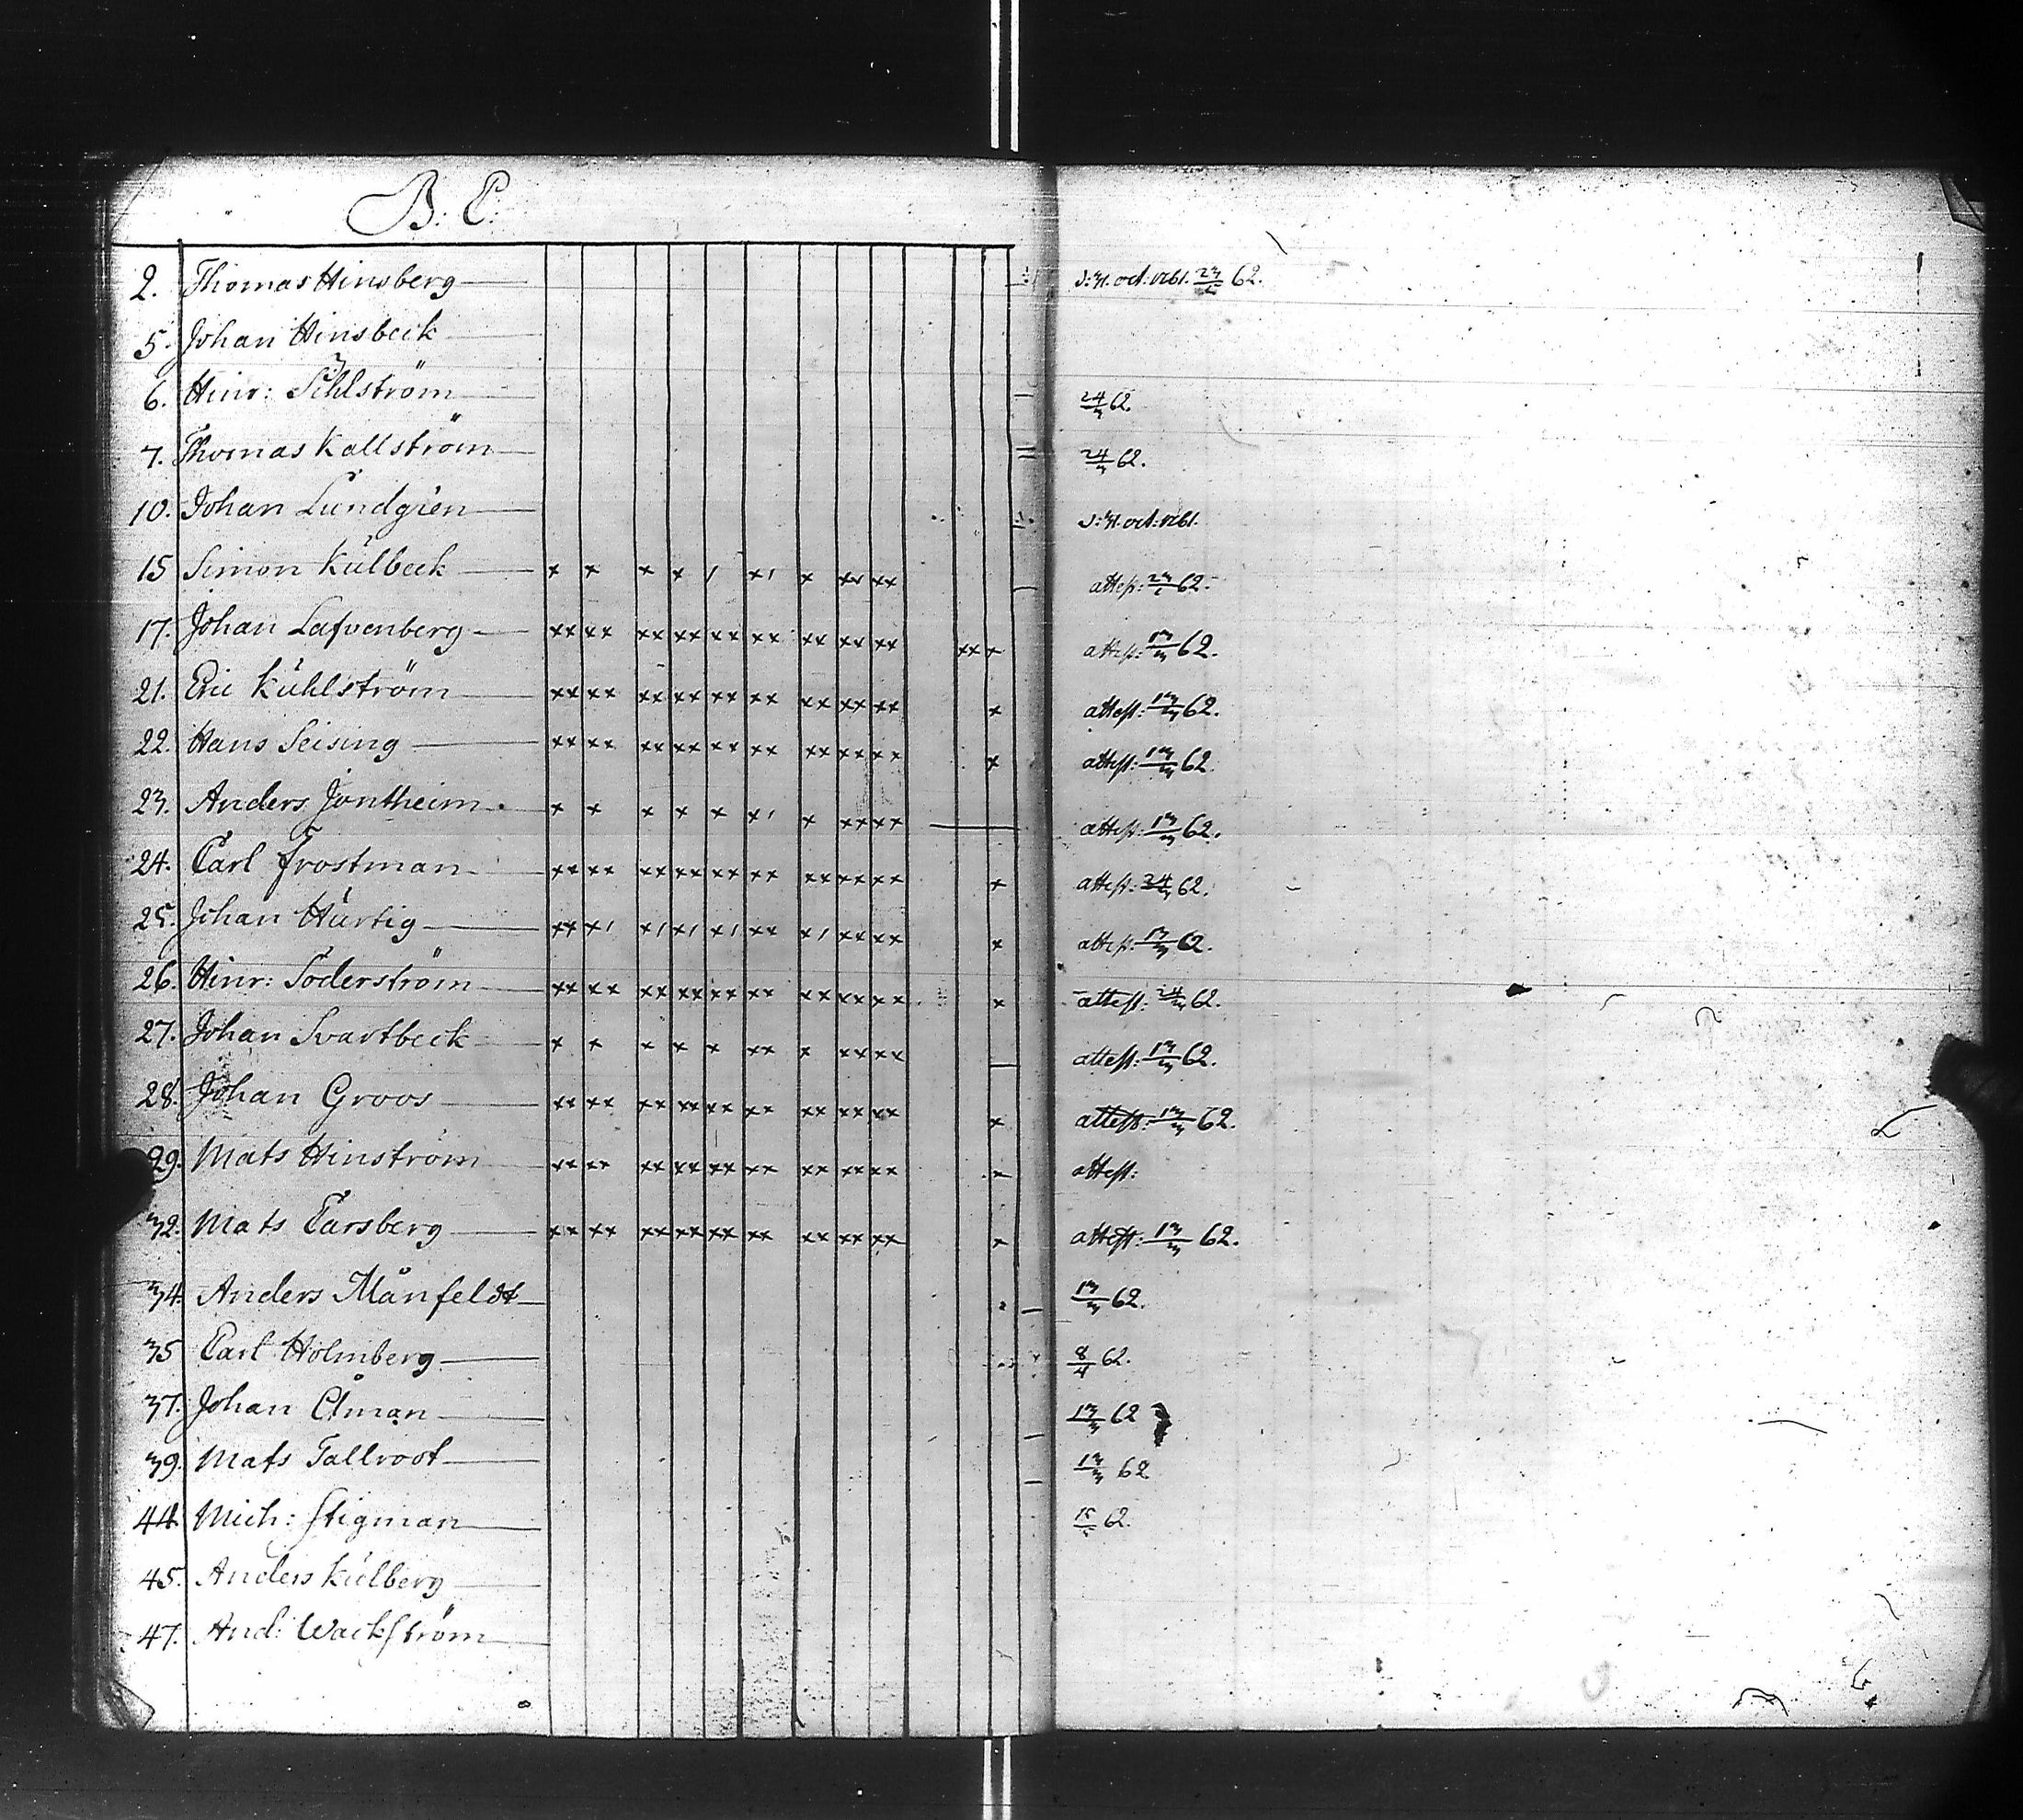 B: C:
2. Thomas Hinsberg
5. Johan Hinsbeck
6. Hinr: Sihlström 24/3 62.
7. Thomas Kallström 24/3 62.
10. Johan Lundgren d: 31. oct: 1761.
15 Simon Kulbeck x x x x / x/ x xx xx attest: 62.
17. Johan Lafvenberg xx xx xx xx xx xx xx xx xx xx x attest: 13/3 62.
21. Eric Kuhlström xx xx xx xx xx xx xx xx xx x attest: 13/3 62.
22. Hans Seising xx xx xx xx xx xx xx xx xx x attest: 13/3 62.
23. Anders Jontheim x x x x x x/ x xx xx attest: 13/3 62.
24. Carl Frostman xx xx xx xx xx xx xx xx xx x attest: 24/3 62.
25. Johan Hurtig xx x/ x/ x/ x/ xx x/ xx xx x attest: 13/3 62.
26. Hinr: Söderström xx xx xx xx xx xx xx xx xx x attest: 24/3 62.
27. Johan Svartbeck x x x x x xx x xx xx attest: 13/3 62.
28. Johan Groos xx xx xx xx xx xx xx xx xx x attest: 13/3 62.
29. Mats Hinström xx xx xx xx xx xx xx xx xx attest:
32. Mats Carsberg xx xx xx xx xx xx xx xx xx x attest: 13/3 62.
34. Anders Månfeldt 13/3 62.
35 Carl Holmberg 8/4 62.
37. Johan Åman 13/3 62
39. Mats Tallroot 13/3 62
44. Mich: Stigman 62.
45. Anders Kulberg
47. And: Wackström